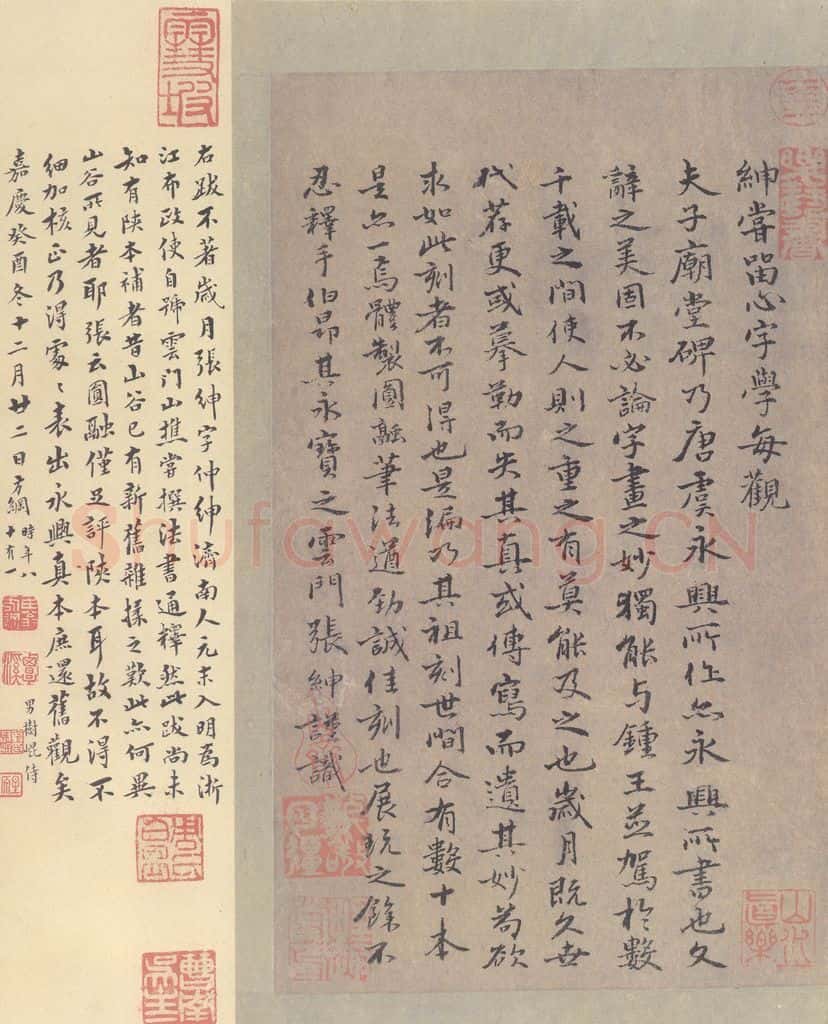 紳嘗留心字學每觀
夫子廟堂碑乃唐虞永興所作亦永興所書也文
辭之美固不必論字畫之妙獨能与鍾王並駕於數
千載之間使人則之重之有莫能及之也歲月既久世
代荐更或摹勒而失其真或傳寫而遺其妙苟欲
求如此刻者不可得也是編乃其祖刻世間合有數十本
是亦一焉體製圓融筆法遒勁誠佳刻也展玩之餘不
忍釋手伯昂其永寶之雲門張紳謹識
右跋不著歲月張紳字仲紳濟南人元末入明為浙
江布政使自號雲門山樵嘗撰法書通釋然此跋尚未
知有陝本補者昔山谷已有新舊雜揉之歎此亦何異
山谷所見者耶張云圓融僅足評陝本耳故不得不
細加核正乃得處〻表出永興真本庶還舊觀矣
嘉慶癸酉冬十二月廿二日方綱時年八十有一
男樹崐侍
雪坡
山水音樂
Shufawang.CN